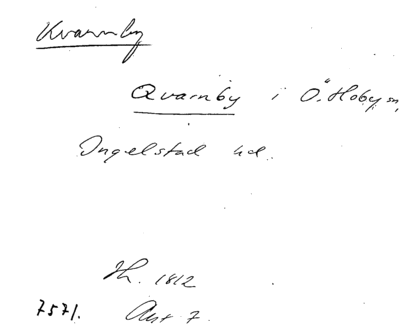 Kvarnby
Qvarnby i Ö. Hoby sn,
Ingelstad hd.
Th. 1812
7571. Akt 7.